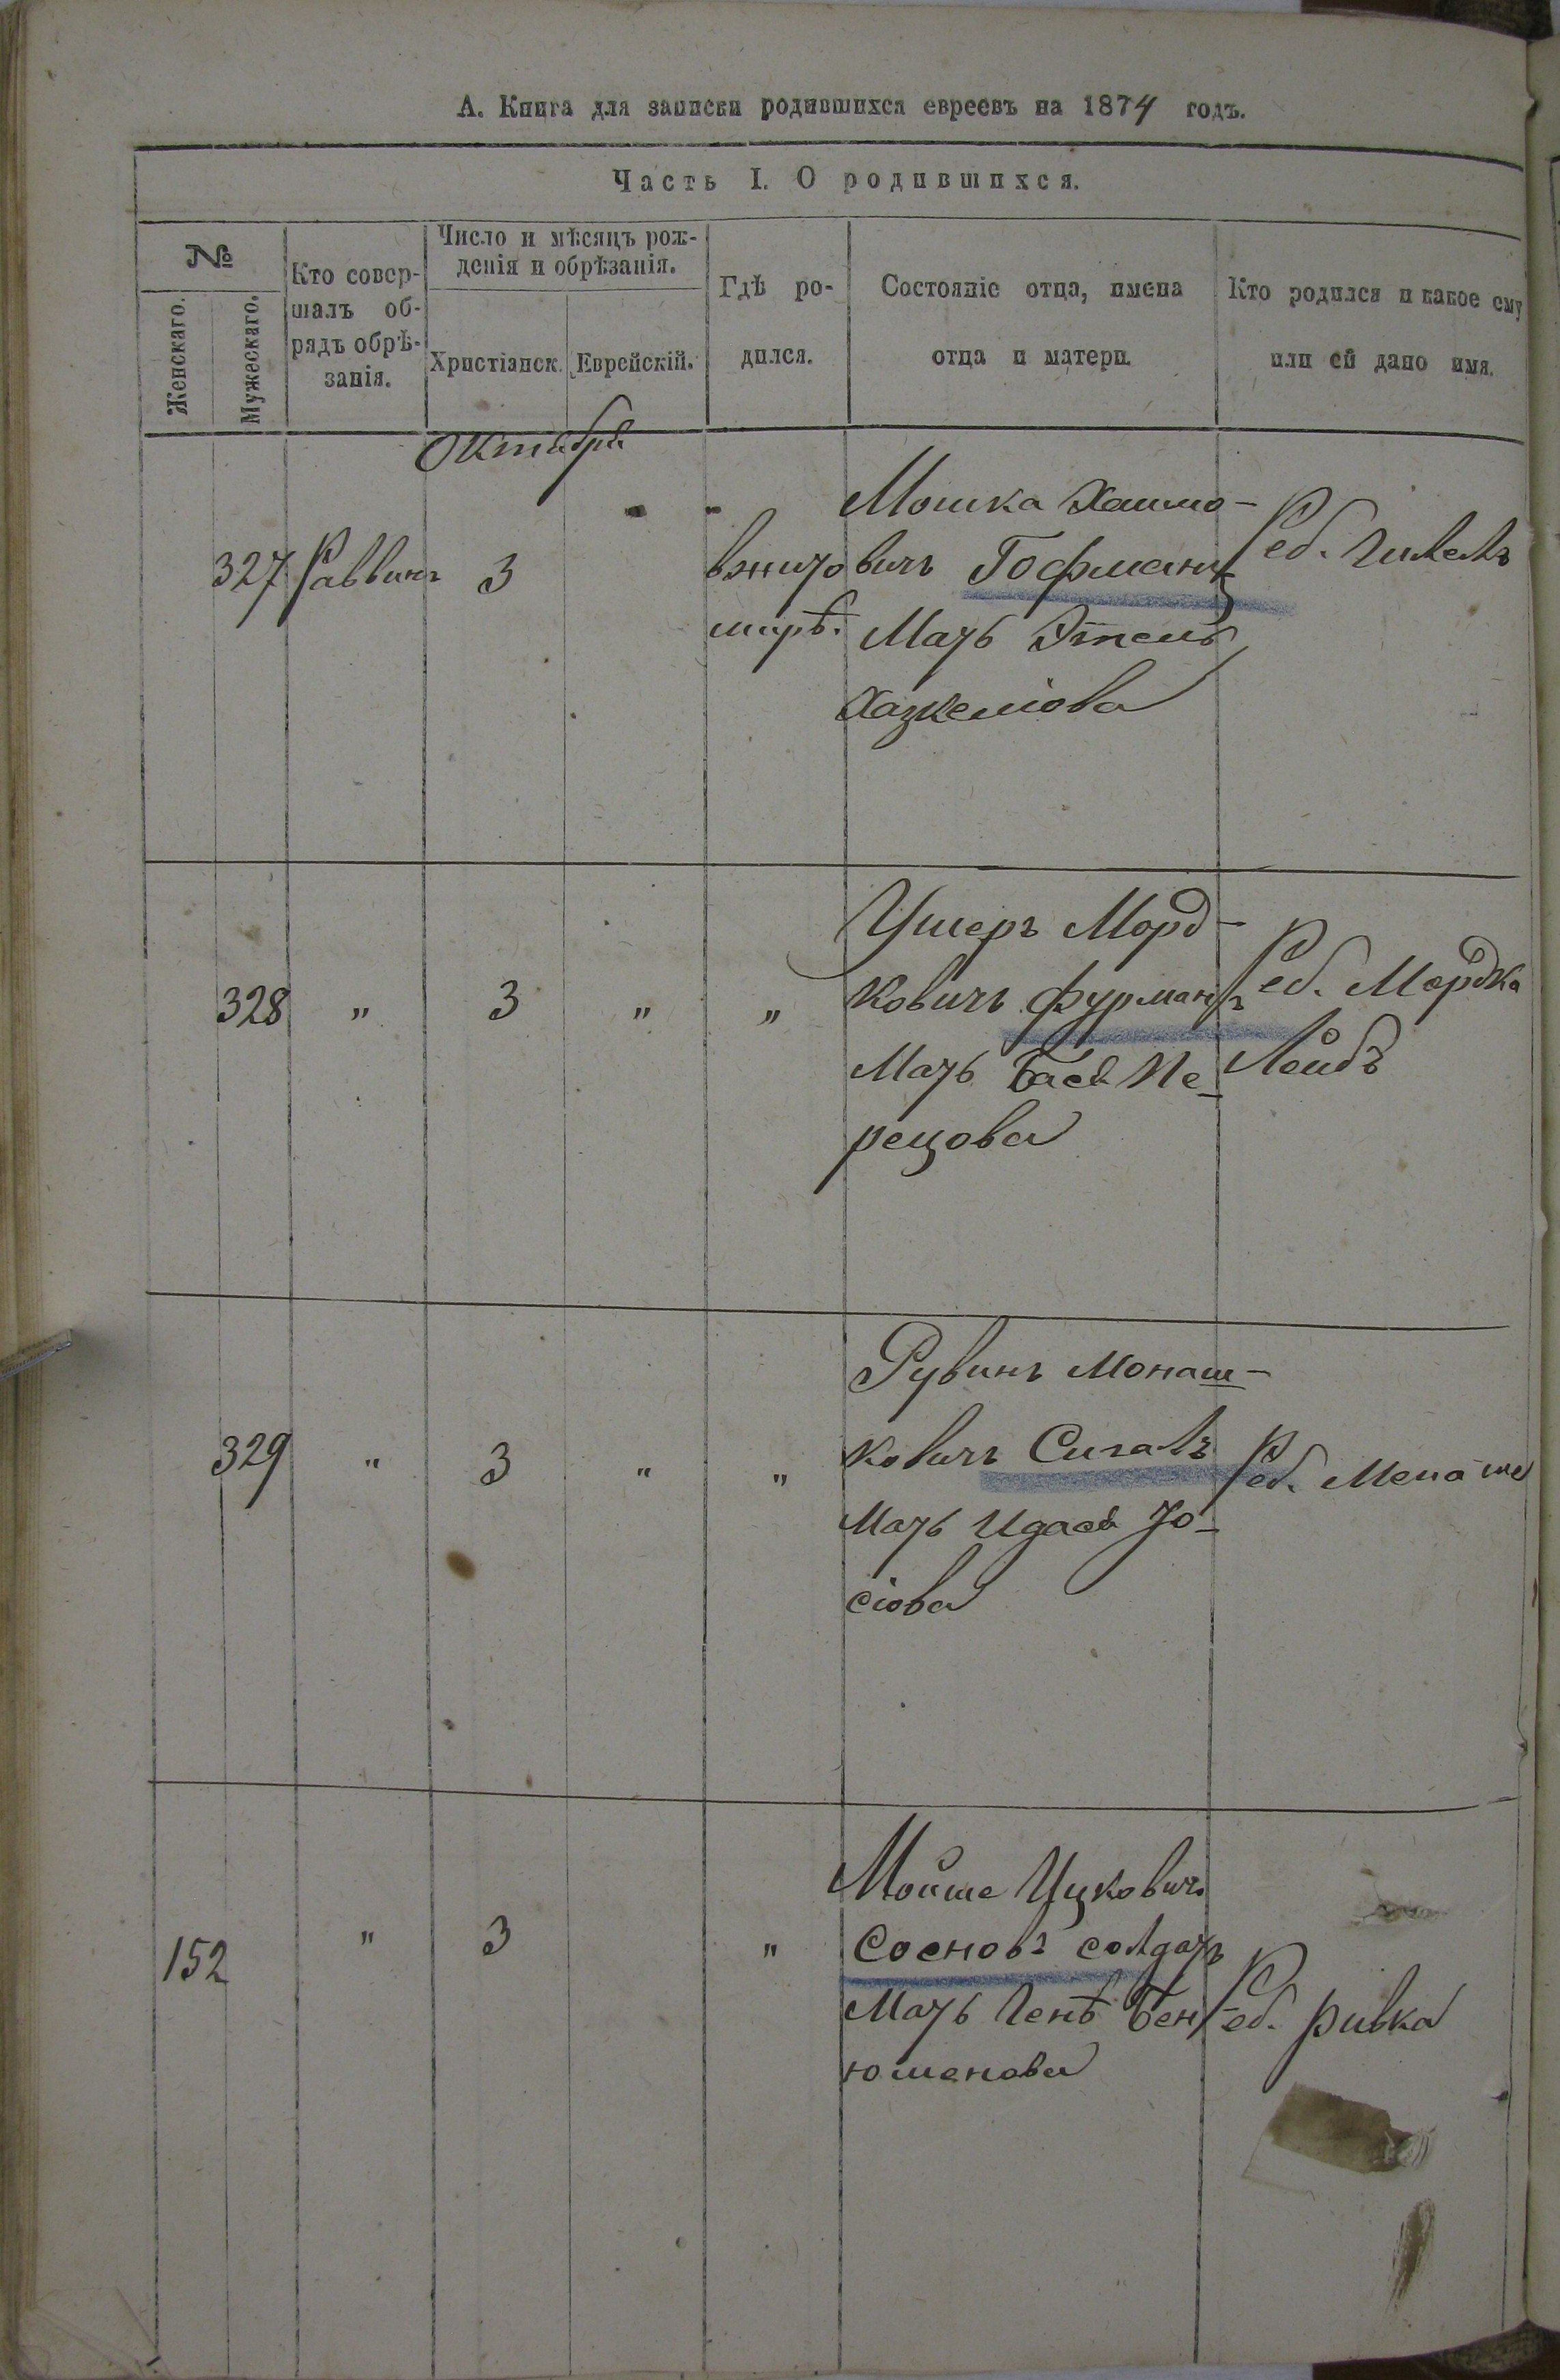 А. Книга для записки родившихся евреевъ на 1874 годъ.
Часть I. О родившихся.
№
Женскаго.
Мужескаго.
Кто совер-
шалъ об-
рядъ обрѣ-
занія.
Число и мѣсяцъ рож-
денія и обрѣзанія.
Христіанск.
Еврейскій.
Гдѣ ро-
дился.
Состояніе отца, имена
отца и матери.
Кто родился и какое ему
или ей дано имя.
Октября
327 Раввинъ 3
вжито
мирѣ.
Мошка Хаимо-
вичъ Гофманъ
Мать Этель
Хазкеліова
Реб. Гилель
328 " 3 " "
Ушеръ Морд-
ковичъ Фурманъ
Мать Бася Пе-
рецова
Реб. Мордка
Лейбъ
329 " 3 " "
Рувинъ Монаш-
ковичъ Сигалъ
Мать Идася Іо-
сіова
Реб. Менаше
152 " 3 "
Мойше Ицковичъ
Сосновъ солдатъ
Мать Генѣ Бен-
юменова
Реб. Ривка